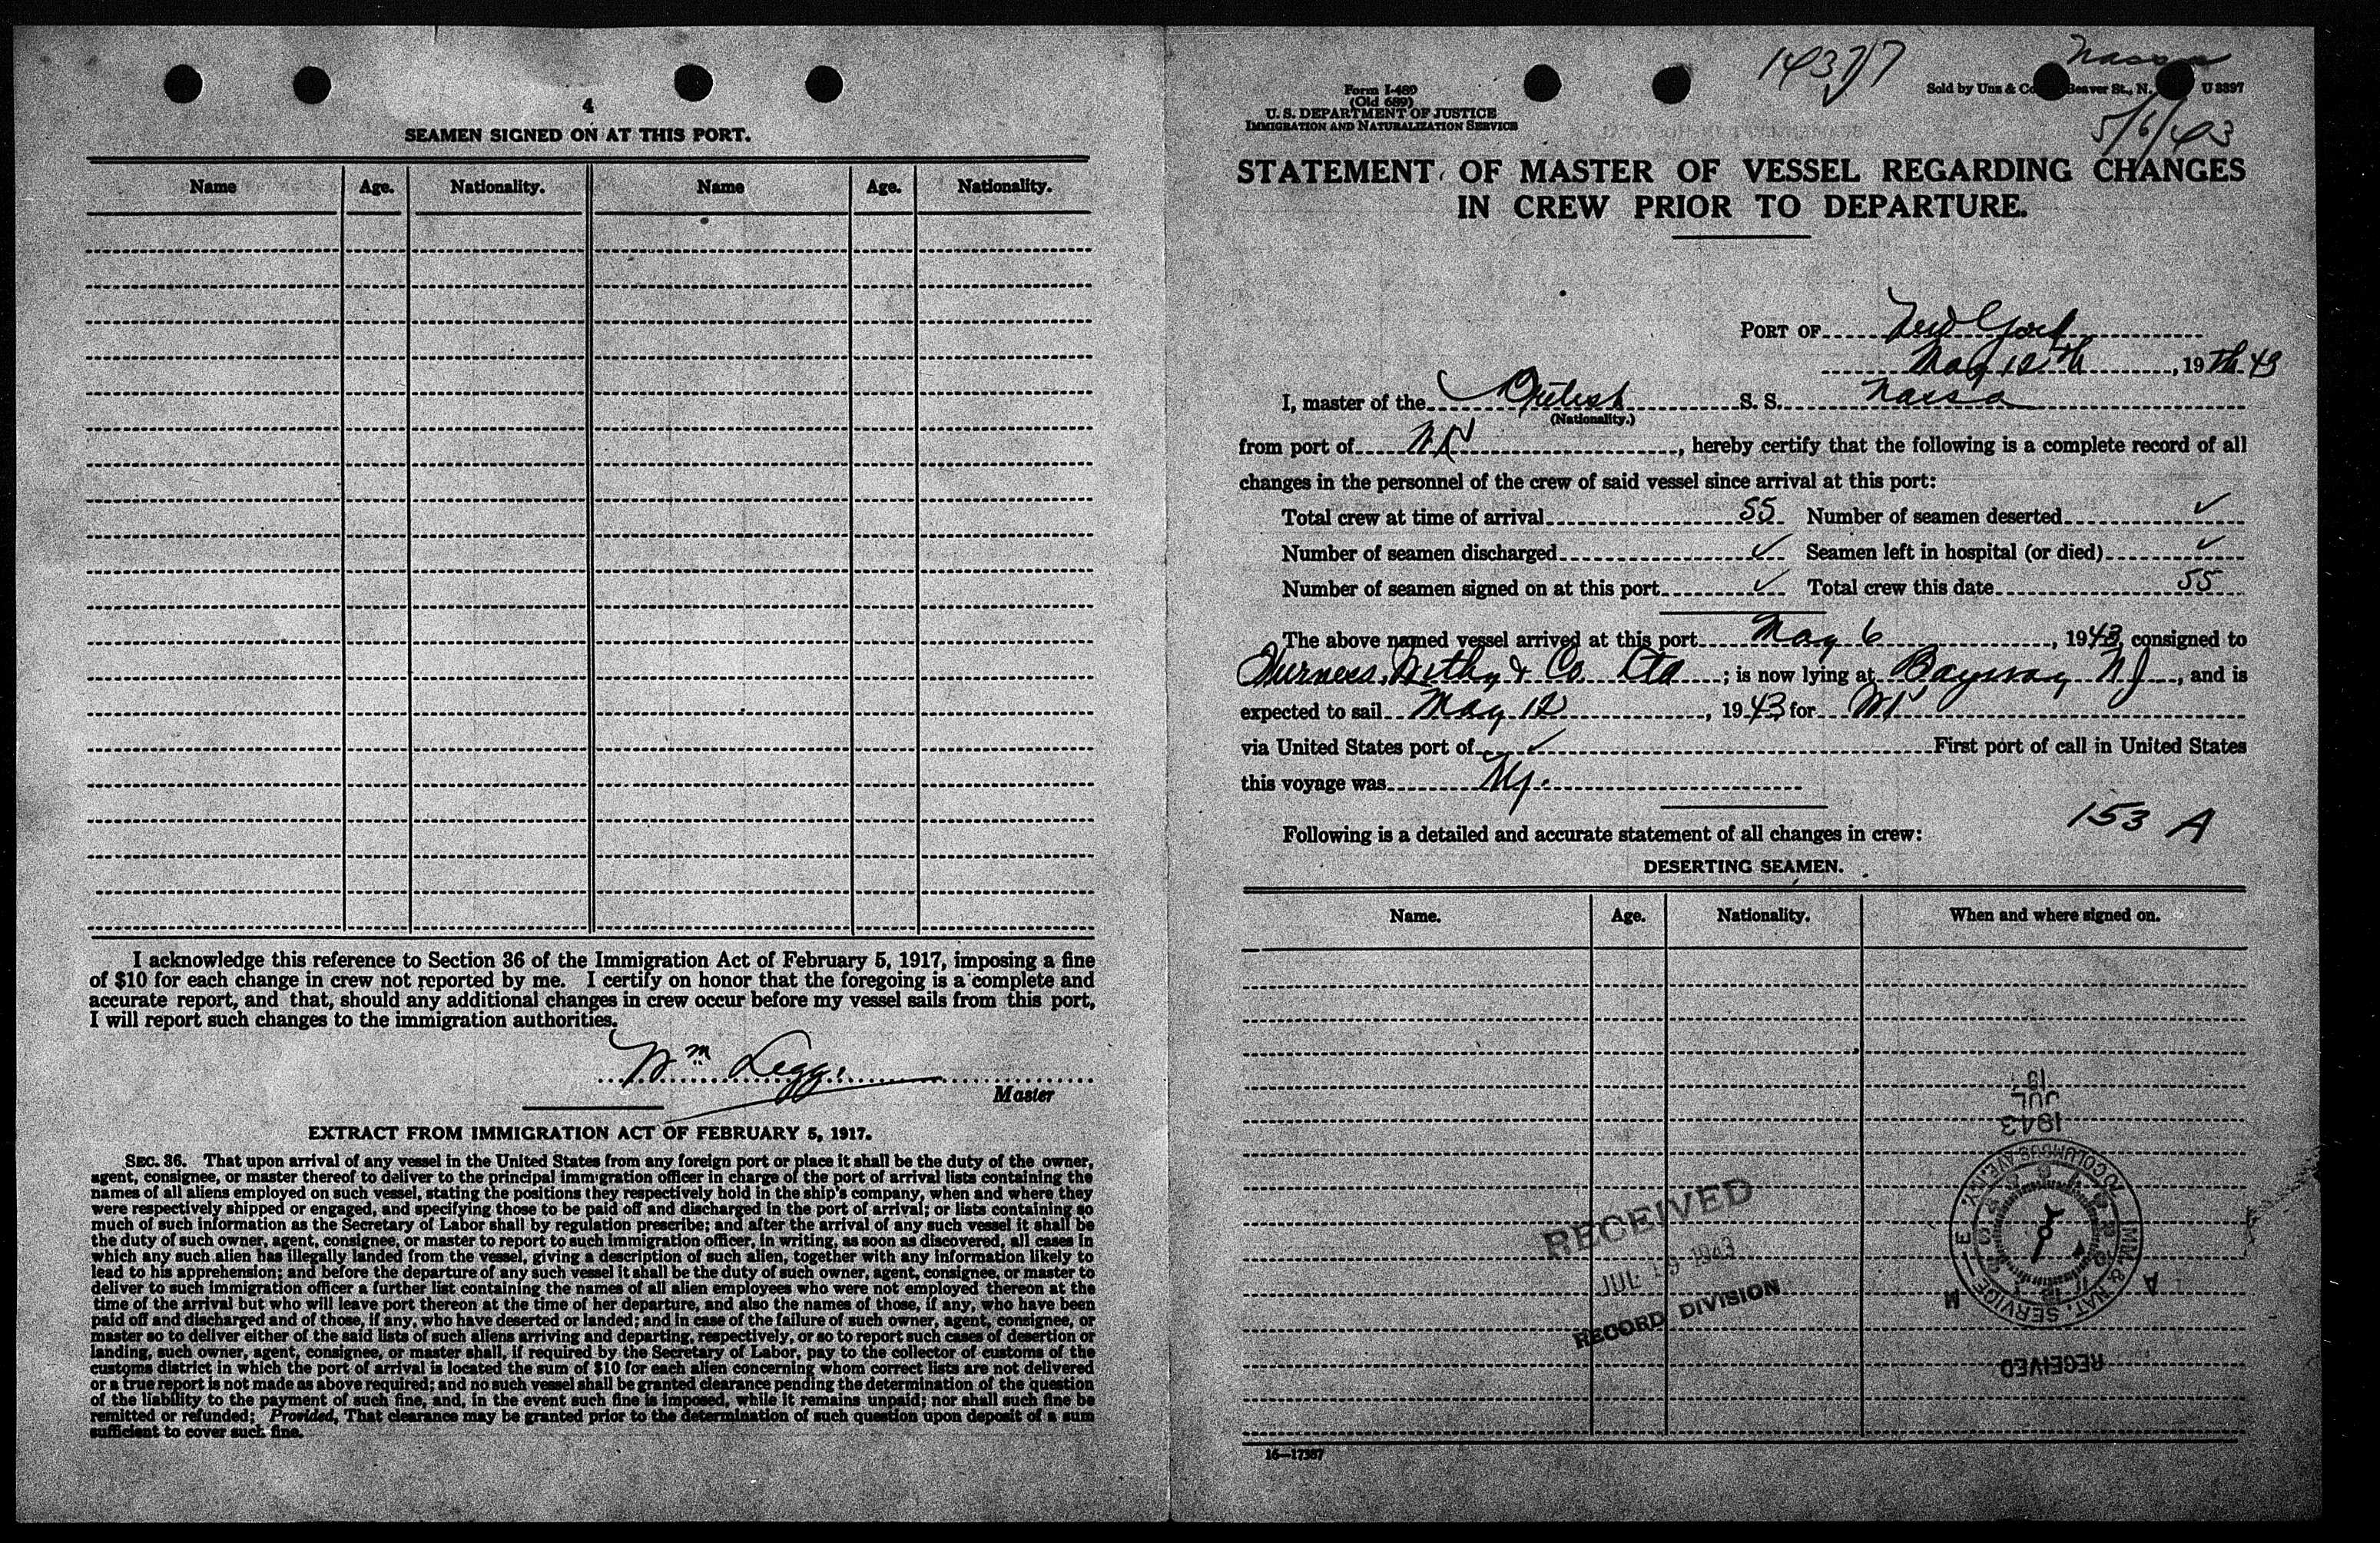 4
SEAMEN SIGNED ON AT THIS PORT.
Name Age. Nationality. Name Age. Nationality.
I acknowledge this reference to Section 36 of the Immigration Act of February 5, 1917, imposing a fine
of $10 for each change in crew not reported by me. I certify on honor that the foregoing is a complete and
accurate report, and that, should any additional changes in crew occur before my vessel sails from this port,
I will report such changes to the immigration authorities.
Wm Legge
Master
EXTRACT FROM IMMIGRATION ACT OF FEBRUARY 5, 1917.
SEC. 36. That upon arrival of any vessel in the United States from any foreign port or place it shall be the duty of the owner,
agent, consignee, or master thereof to deliver to the principal immigration officer in charge of the port of arrival lists containing the
names of all aliens employed on such vessel, stating the positions they respectively hold in the ship's company, when and where they
were respectively shipped or engaged, and specifying those to be paid off and discharged in the port of arrival; or lists containing so
much of such information as the Secretary of Labor shall by regulation prescribe; and after the arrival of any such vessel it shall be
the duty of such owner, agent, consignee, or master to report to such immigration officer, in writing, as soon as discovered, all cases in
which any such alien has illegally landed from the vessel, giving a description of such alien, together with any information likely to
lead to his apprehension; and before the departure of any such vessel it shall be the duty of such owner, agent, consignee, or master to
deliver to such immigration officer a further list containing the names of all alien employees who were not employed thereon at the
time of the arrival but who will leave port thereon at the time of her departure, and also the names of those, if any, who have been
paid off and discharged and of those, if any, who have deserted or landed; and in case of the failure of such owner, agent, consignee, or
master so to deliver either of the said lists of such aliens arriving and departing, respectively, or so to report such cases of desertion or
landing, such owner, agent, consignee, or master shall, if required by the Secretary of Labor, pay to the collector of customs of the
customs district in which the port of arrival is located the sum of $10 for each alien concerning whom correct lists are not delivered
or a true report is not made as above required; and no such vessel shall be granted clearance pending the determination of the question
of the liability to the payment of such fine, and, in the event such fine is imposed, while it remains unpaid; nor shall such fine be
remitted or refunded; Provided, That clearance may be granted prior to the determination of such question upon deposit of a sum
sufficient to cover such fine.
14377
Nassa
Form I-489
(Old 689)
U. S. DEPARTMENT OF JUSTICE
IMMIGRATION AND NATURALIZATION SERVICE
Sold by Unz & Co Beaver St., N. U 8397
5/6/43
STATEMENT OF MASTER OF VESSEL REGARDING CHANGES
IN CREW PRIOR TO DEPARTURE.
PORT OF New York
May 12th, 19th 43
I, master of the British S. S. Nassa
(Nationality.)
from port of, hereby certify that the following is a complete record of all
changes in the personnel of the crew of said vessel since arrival at this port:
Total crew at time of arrival 55 Number of seamen deserted ✓
Number of seamen discharged ✓ Seamen left in hospital (or died) ✓
Number of seamen signed on at this port ✓ Total crew this date 55
The above named vessel arrived at this port May 6, 1943, consigned to
Furness, Withy & Co Ltd; is now lying at Bayway NJ, and is
expected to sail May 12, 1943 for
via United States port of ✓ First port of call in United States
this voyage was NY.
153 A
Following is a detailed and accurate statement of all changes in crew:
DESERTING SEAMEN.
Name. Age. Nationality. When and where signed on.
19
JUL
1943
70 COLUMBUS AVE. N.Y.
IMM. & NAT. SERVICE
A
M
RECEIVED
RECEIVED
JUL 19 1943
RECORD DIVISION
16—17387